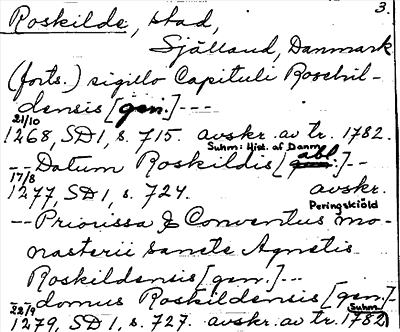 3.
Roskilde, stad,
Själland, Danmark
(forts.) sigillo Capituli Roschil-
densis [gen.] ---
21/10
1268, SD 1, s. 715. avskr. av tr. 1782.
Suhm: Hist. af Danm
-- Datum Roskildis [abl.] --
17/8
1277, SD 1, s. 724. avskr.
Peringskiöld
-- Priorissa & Conventus mo-
nasterii sancte Agnetis
Roskildensis [gen.] ---
domus Roskildensis [gen.] -
22/9 Suhm
1279, SD 1, s. 727. avskr. av tr. 1782)